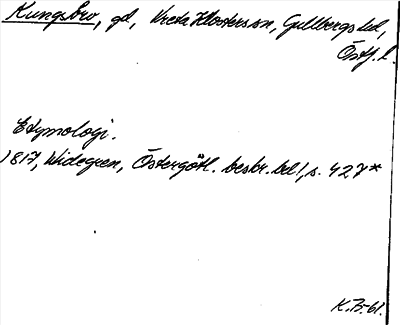 Kungsbro, gd, Vreta Klosters sn, Gullbergs hd,
Östg. l.
Etymologi.
1817, Widegren, Östergötl. beskr. bd 1, s. 427*
K.B-61.